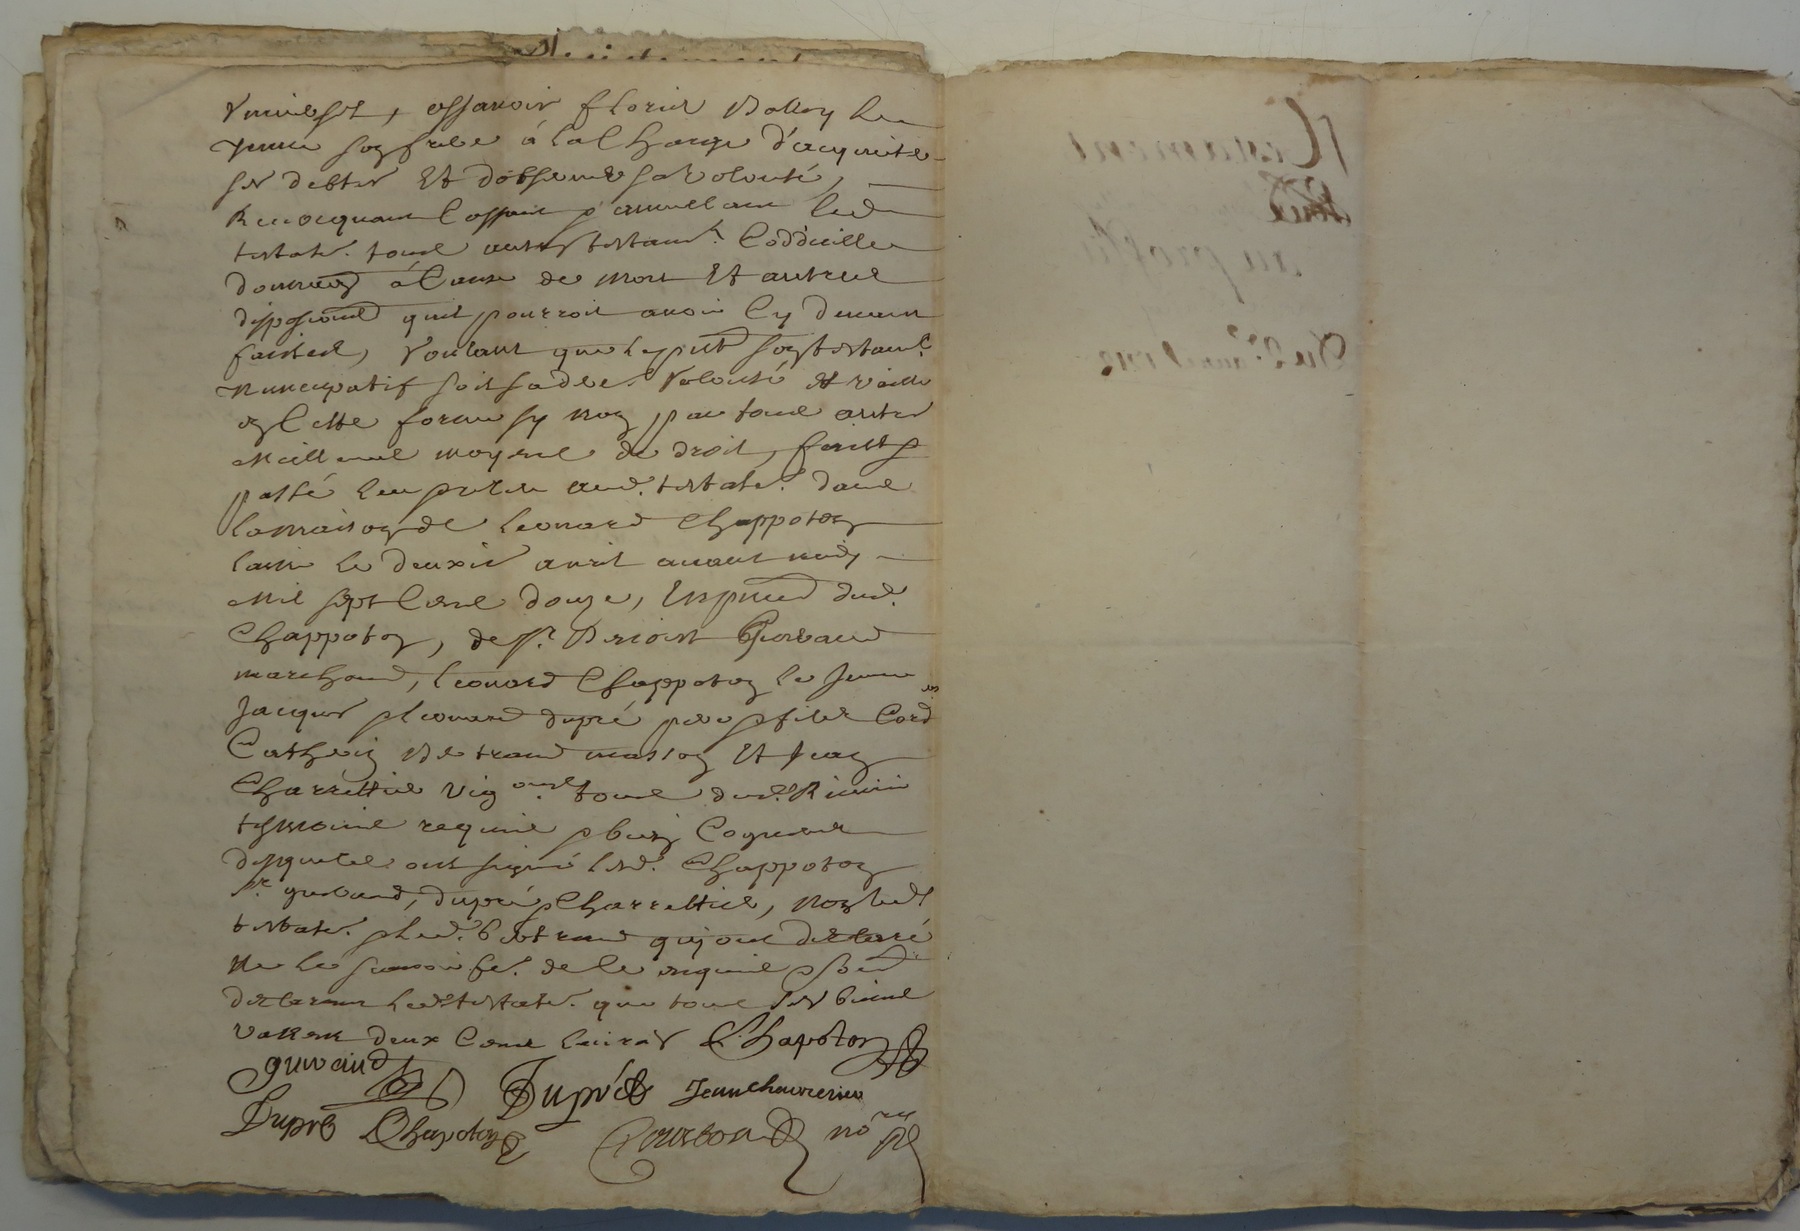 universel, assavoir Floris Balley le
jeune son frere a la charge d'acquiter
ses debtes et d'observer sa volonté,
Revocquant cassant & annullant led.
testatr. tous autres testamt. Coddicilles
donnaons à cause de mort et autres
disposions quil pourroit avoir cy devant
faictes, voulant que le pnt son testamt.
nuncupatif soit sa dre. volonté et vaille
en cette forme sy non par tous autres
meilleurs moyens de droit, faict &
passé leu publié aud. testatr. dans
la maison de Leonard Chappoton
laisné le deuxie avril avant midy
mil sept cens douze, En pnce dud.
Chappoton, de sr. Benoist Guivaud
marchand, Leonard Chappoton le jeune
Jacques & Leonard dupré pere & fils Cordrs
Catherin Bertrand masson et Jean
Charrettier vigons. tous dud.
tesmoins requis & bien cogneus
desquels ont signé lesd. Chappoton
sr. guivaud, dupré & Charrettier, non led.
testatr. & led. bertrand qui ont declaré
ne le scavoir fe. de ce enquis & so.
declarant led. testatr. que tous ses biens
vallent deux Cens livres Chapoton
guivaud
Dupré Jean Charretier
Dupré Chapoton
no re
Testament
nuncupatif
Du 2e. avril 1712